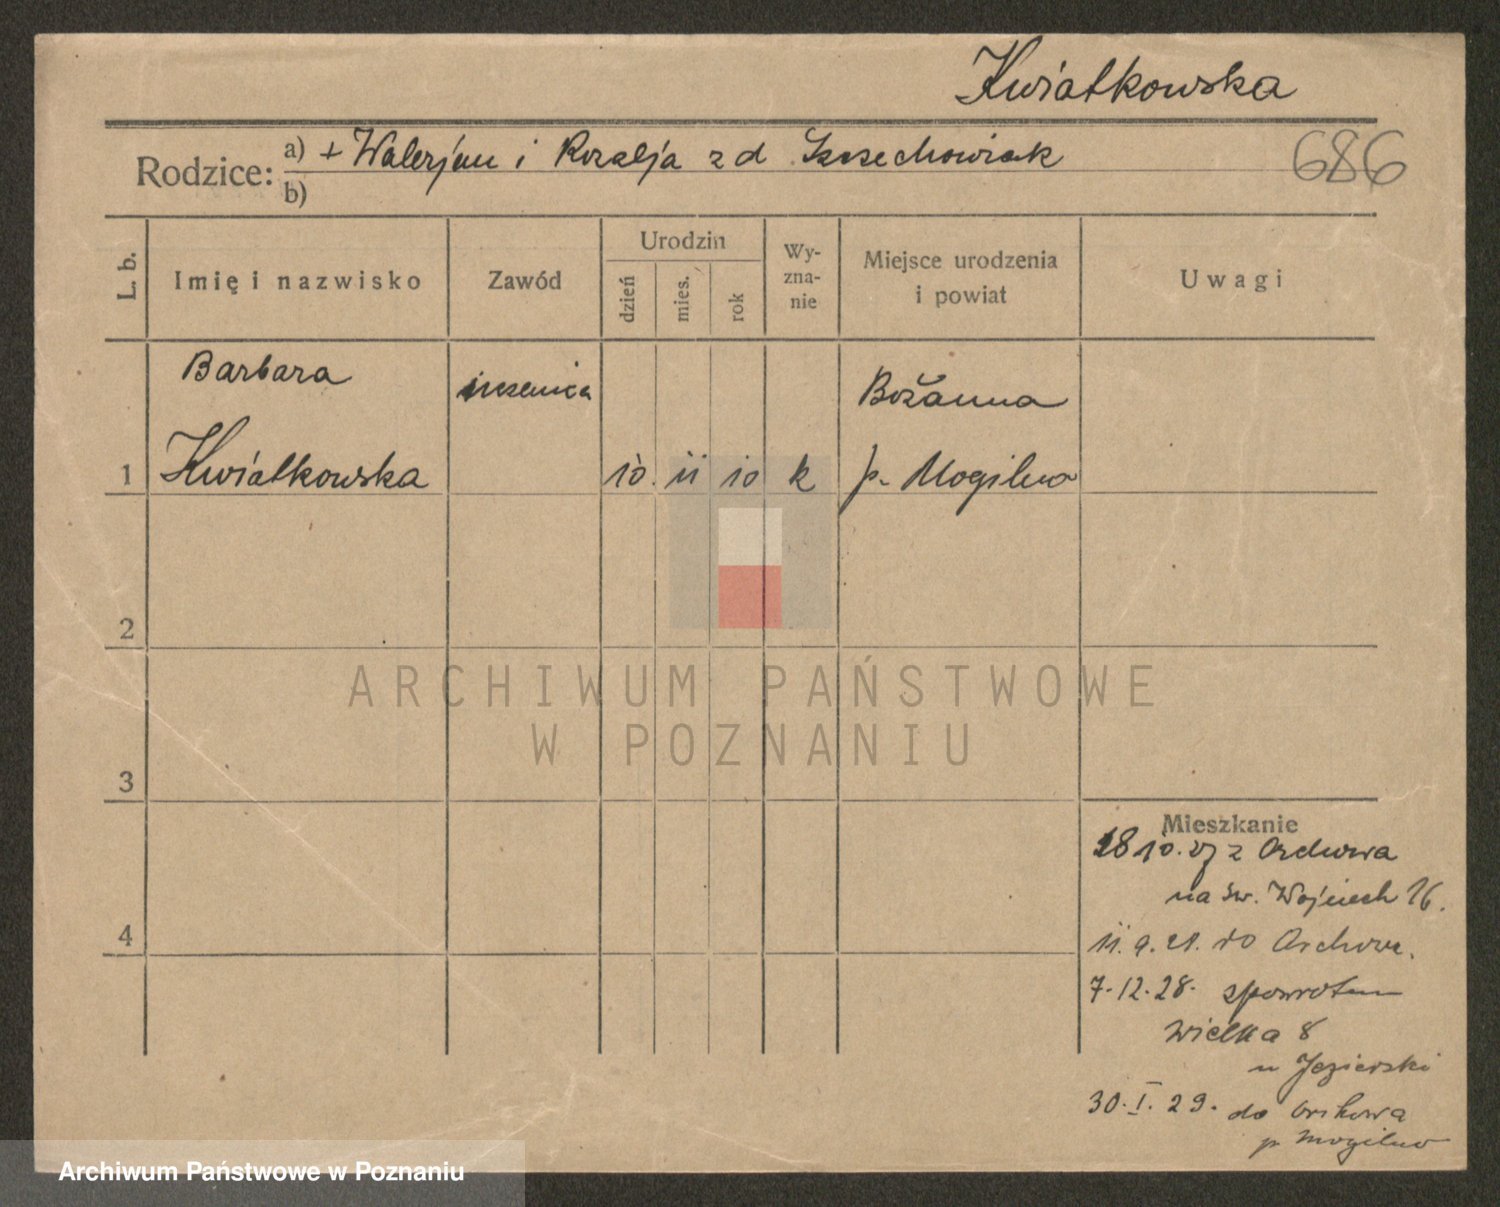 Kwiatkowska
Rodzice: a) + Walerjan i Rozalja z d Szczechowiak
b)
686
L. b.
Imię i nazwisko
Zawód
Urodzin
dzień
mies.
rok
Wy-
zna-
nie
Miejsce urodzenia
i powiat
Uwagi
Barbara
uczenica
Bożanna
1
Kwiatkowska
10. 11 10
k
p. Mogilno
2
3
4
Mieszkanie
28 10. 27 z Orchowa
na św. Wojciech 26.
11. 9. 28. do Orchowa.
7. 12. 28. spowrotem
Wielka 8
u Jezierski
30. I. 29. do Orchowa
p Mogilno
ARCHIWUM PAŃSTWOWE
W POZNANIU
Archiwum Państwowe w Poznaniu